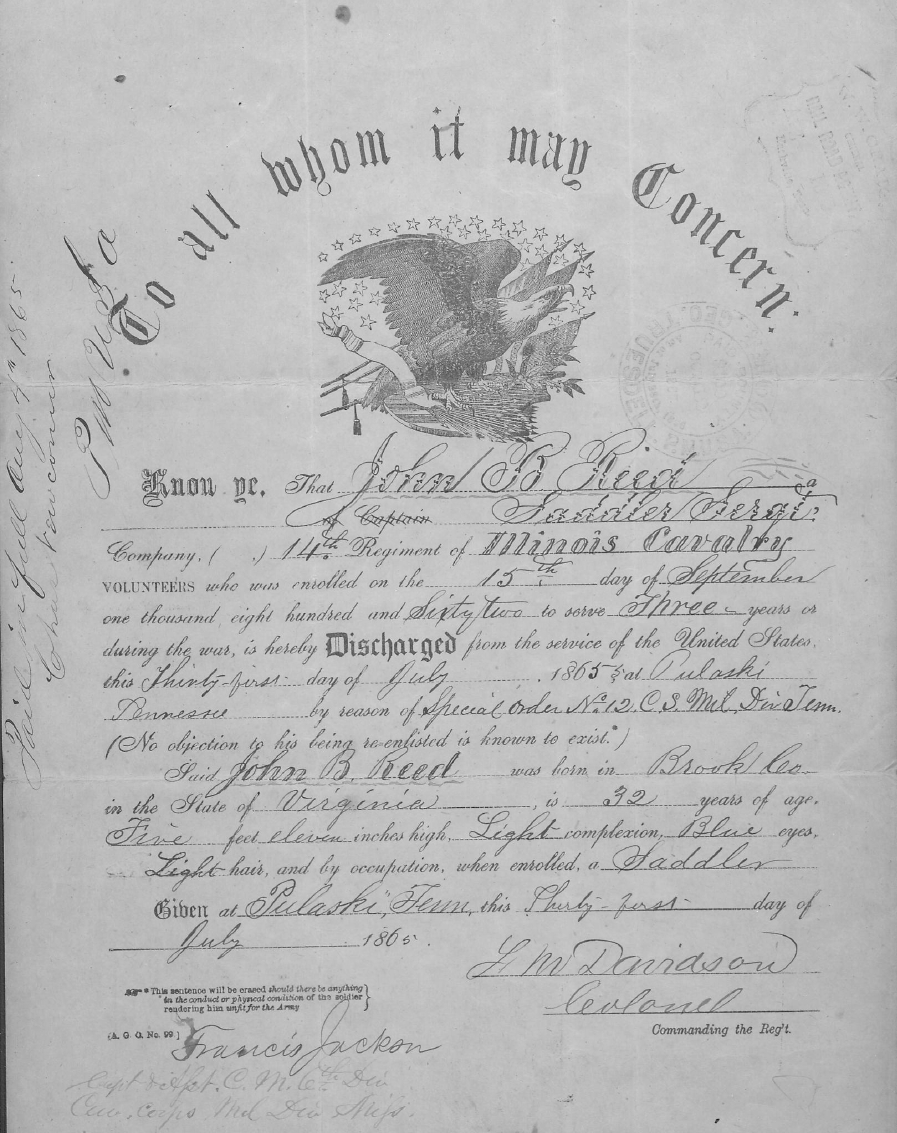 To all whom it may Concern.
Know ye, That John B Reed a
of Captain Saddler Sergt.
Company, ( ,) 14th Regiment of Illinois Cavalry
VOLUNTEERS who was enrolled on the 15th day of September
one thousand eight hundred and Sixty two to serve Three years or
during the war, is hereby Discharged from the service of the United States,
this Thirty-first day of July, 1865 at Pulaski
Tennessee by reason of Special Order No. 12. C.S. Mil, Div Tenn.
(No objection to his being re-enlisted is known to exist.*)
Said John B. Reed was born in Brook Co
in the State of Virginia, is 32 years of age,
Five feet eleven inches high, Light complexion, Blue eyes,
Light hair, and by occupation, when enrolled, a Saddler
Given at Pulaski, Tenn, this Thirty-first day of
July 1865.
L M Davidson
Colonel
Commanding the Reg't.
* This sentence will be erased should there be anything
in the conduct or physical condition of the soldier
rendering him unfit for the Army
[A. G. O. No. 99.]
Francis Jackson
Capt & Asst. C. M. 6th Div
Cav. corps Mil Div Miss.
Paid in full Aug. 4th 1865
GEO. TRUESDELL
PAID